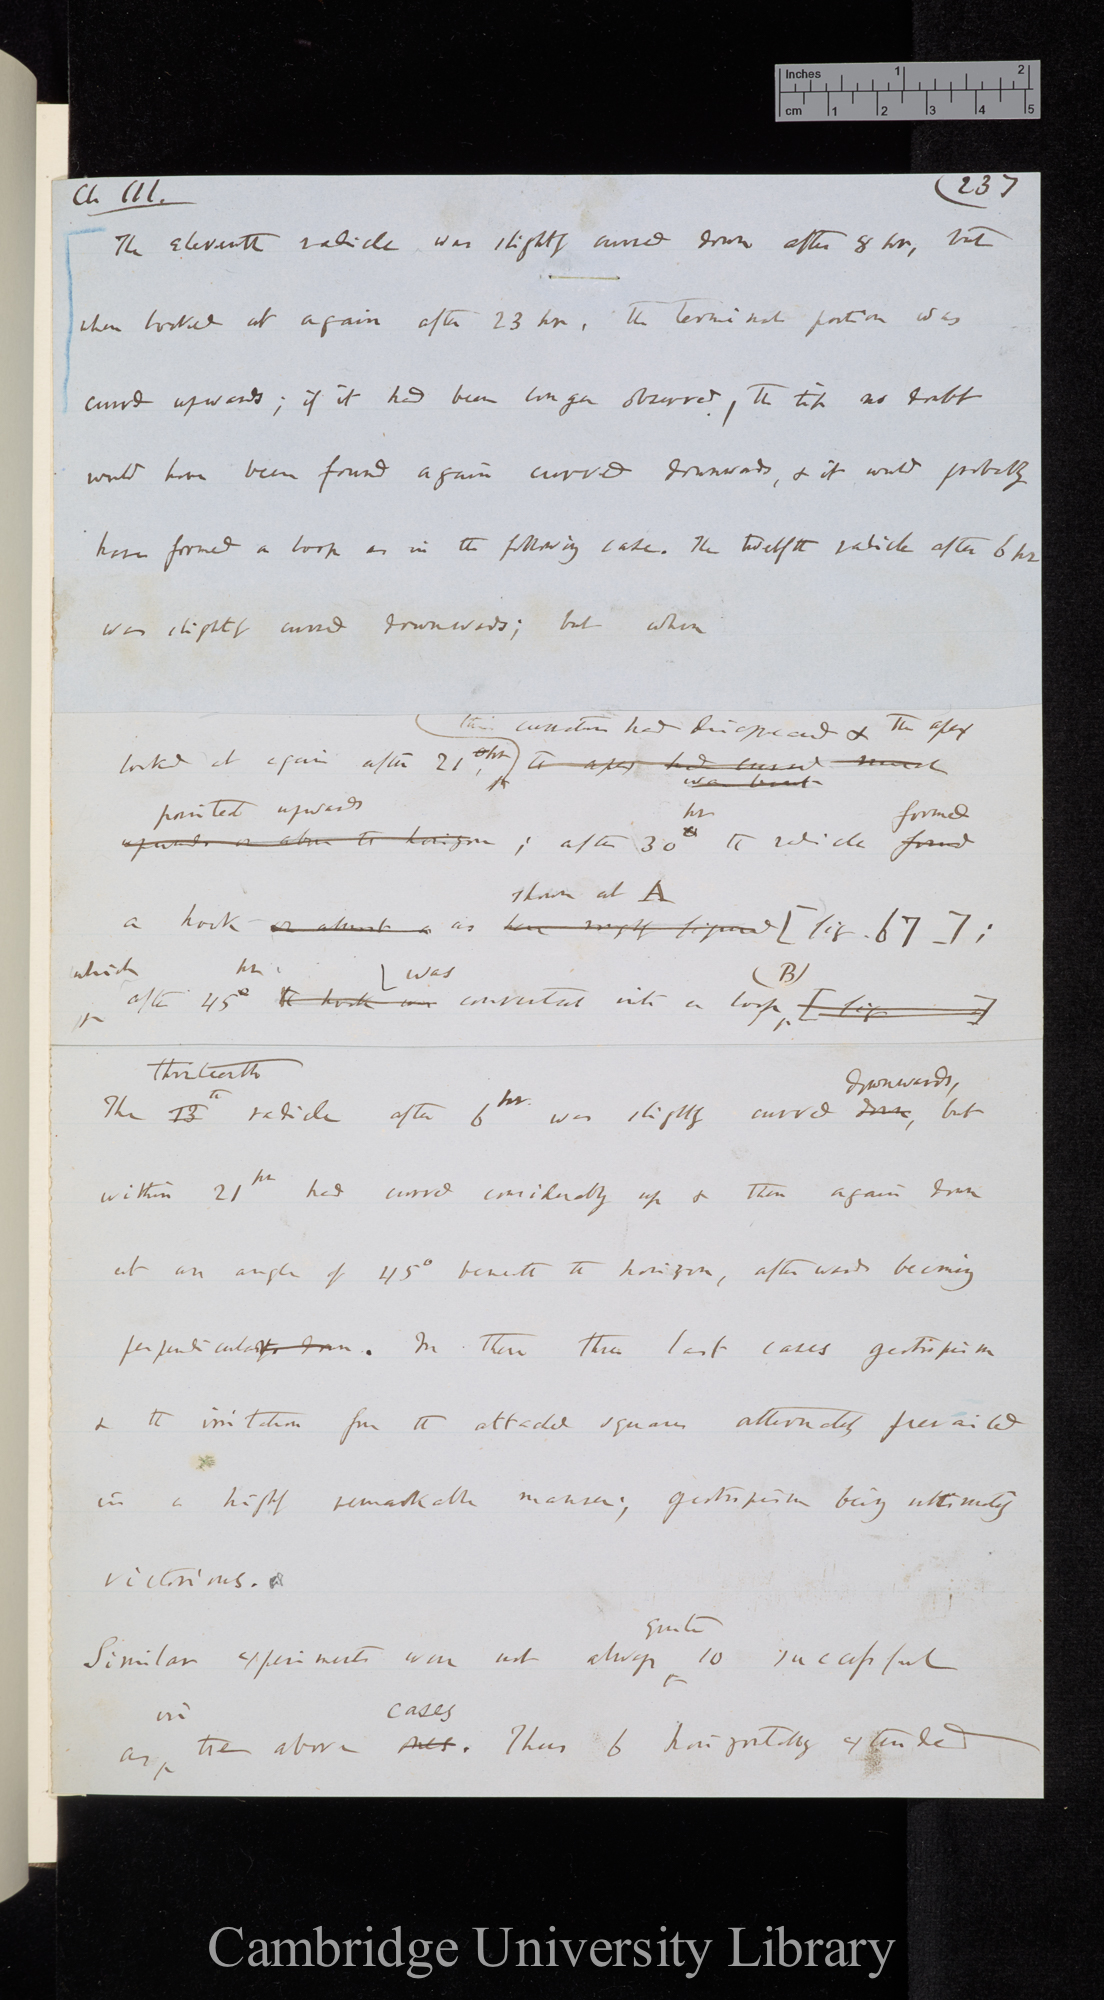 Inches 1 2
cm 1 2 3 4 5
Ch III.
(237
The eleventh radicle was slightly curved down after 8 hr, but
when looked at again after 23 hr, the terminal portion was
curved upwards; if it had been longer observed, the tip no doubt
would have been found again curved downwards, & it would probably
have formed a loop as in the following case. The twelfth radicle after 6 hr
was slightly curved downwards; but when
this curvature had disappeared & the apex
looked at again after 21 hr, the apex had curved much
was bent
pointed upwards hr formed
upwards or above the horizon; after 30 the radicle found
shown at A
a hook or almost a as here roughly figured [fig. 67];
which hr. was (B)
after 45° the hook was converted into a loop, [fig ]
thirteenth downwards,
The 13th radicle after 6 hr. was slightly curved down, but
within 21 hr had curved considerably up & then again down
at an angle of 45° beneath the horizon, afterwards becoming
perpendicular down. In these three last cases geotropism
& the irritation from the attached squares alternately prevailed
in a highly remarkable manner; geotropism being ultimately
victorious.
quite
Similar experiments were not always so successful
in cases
as the above ones. Thus 6 horizontally extended
Cambridge University Library